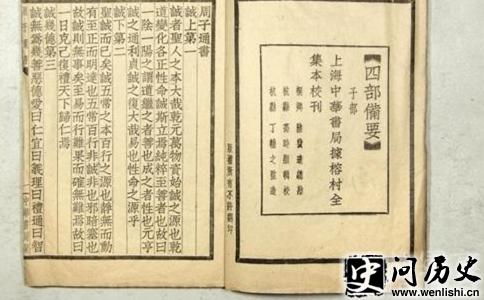 四部備要
子部
上海中華書局據榕村全
集本校刊
桐鄉 陸費逵總勘
杭縣 高時顯輯校
杭縣 丁輔之監造
版權所有不許翻印
周子通書
誠上第一
誠者聖人之本大哉乾元萬物資始誠之源也乾
道變化各正性命誠斯立焉純粹至善者也故曰
一陰一陽之謂道繼之者善也成之者性也元亨
誠之通利貞誠之復大哉易也性命之源乎
誠下第二
聖誠而已矣誠五常之本百行之源也靜無而動
有至正而明達也五常百行非誠非也邪暗塞也
故誠則無事矣至易而行難果而確無難焉故曰
一日克己復禮天下歸仁焉
誠幾德第三
誠無為幾善惡德愛曰仁宜曰義理曰禮通曰智
史问历史
www.wenlishi.cn